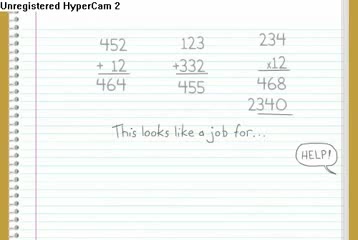 Unregistered HyperCam 2
452 123 234
+ 12 +332 x12
464 455 468
2340
This looks like a job for...
HELP!